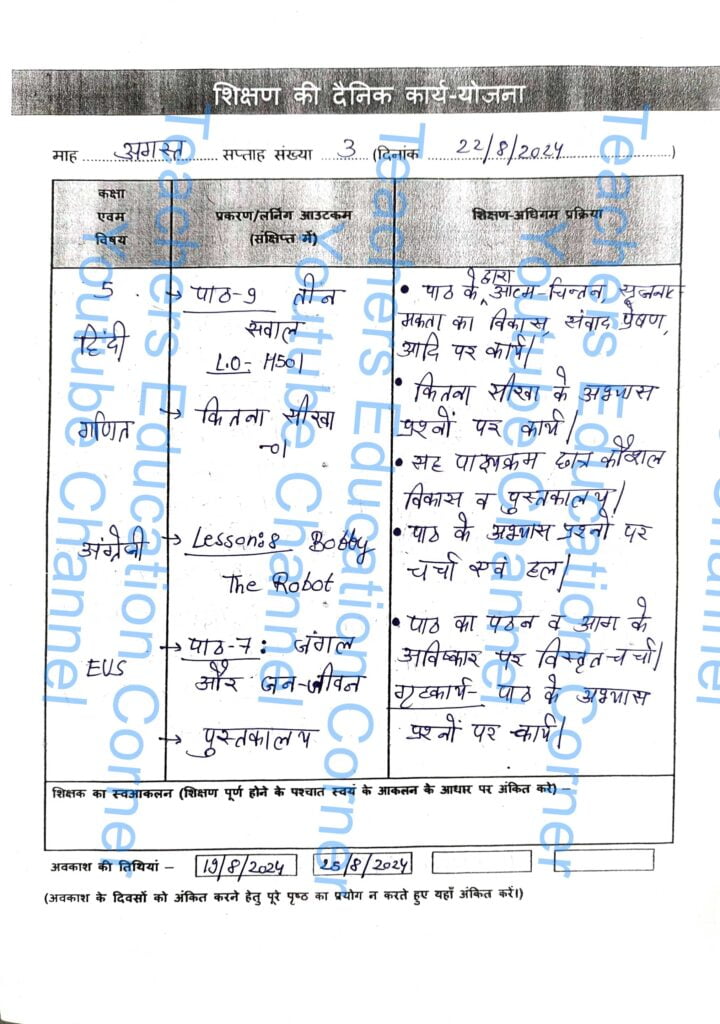 शिक्षण की दैनिक कार्य-योजना
माह अगस्त सप्ताह संख्या 3 (दिनांक 22/8/2024)
कक्षा
एवम
विषय
प्रकरण/लर्निंग आउटकम
(संक्षिप्त में)
शिक्षण-अधिगम प्रक्रिया
5
हिंदी
→ पाठ-9 तीन
सवाल
L.O- H501
• पाठ के द्वारा आत्म-चिन्तन सृजना-
त्मकता का विकास, संवाद प्रेषण,
आदि पर कार्य।
गणित
→ कितना सीखा
-01
• कितना सीखा के अभ्यास
प्रश्नों पर कार्य।
• सह पाठ्यक्रम छात्र कौशल
विकास व पुस्तकालय।
अंग्रेजी
→ Lesson:8 Bobby
The Robot
• पाठ के अभ्यास प्रश्नों पर
चर्चा एवं हल।
EVS
→ पाठ-7: जंगल
और जन-जीवन
→ पुस्तकालय
• पाठ का पठन व आग के
अविष्कार पर विस्तृत-चर्चा।
गृहकार्य- पाठ के अभ्यास
प्रश्नों पर कार्य।
शिक्षक का स्वआकलन (शिक्षण पूर्ण होने के पश्चात स्वयं के आकलन के आधार पर अंकित करे) –
अवकाश की तिथियां – 19/8/2024 25/8/2024
(अवकाश के दिवसों को अंकित करने हेतु पूरे पृष्ठ का प्रयोग न करते हुए यहाँ अंकित करें।)
Teachers Education Corner
Youtube Channel
Teachers Education Corner
Youtube Channel
Teachers Education Corner
Youtube Channel